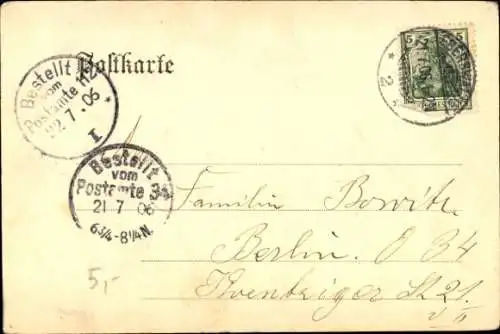 Postkarte
Bestellt
vom
Postamte 112
22.7.06
I
Bestellt
vom
Postamte 34
21 7 06
6¾-8¼N.
5 5
* 2
Familie Bowitz
Berlin. O 34
Str 21.
5,-